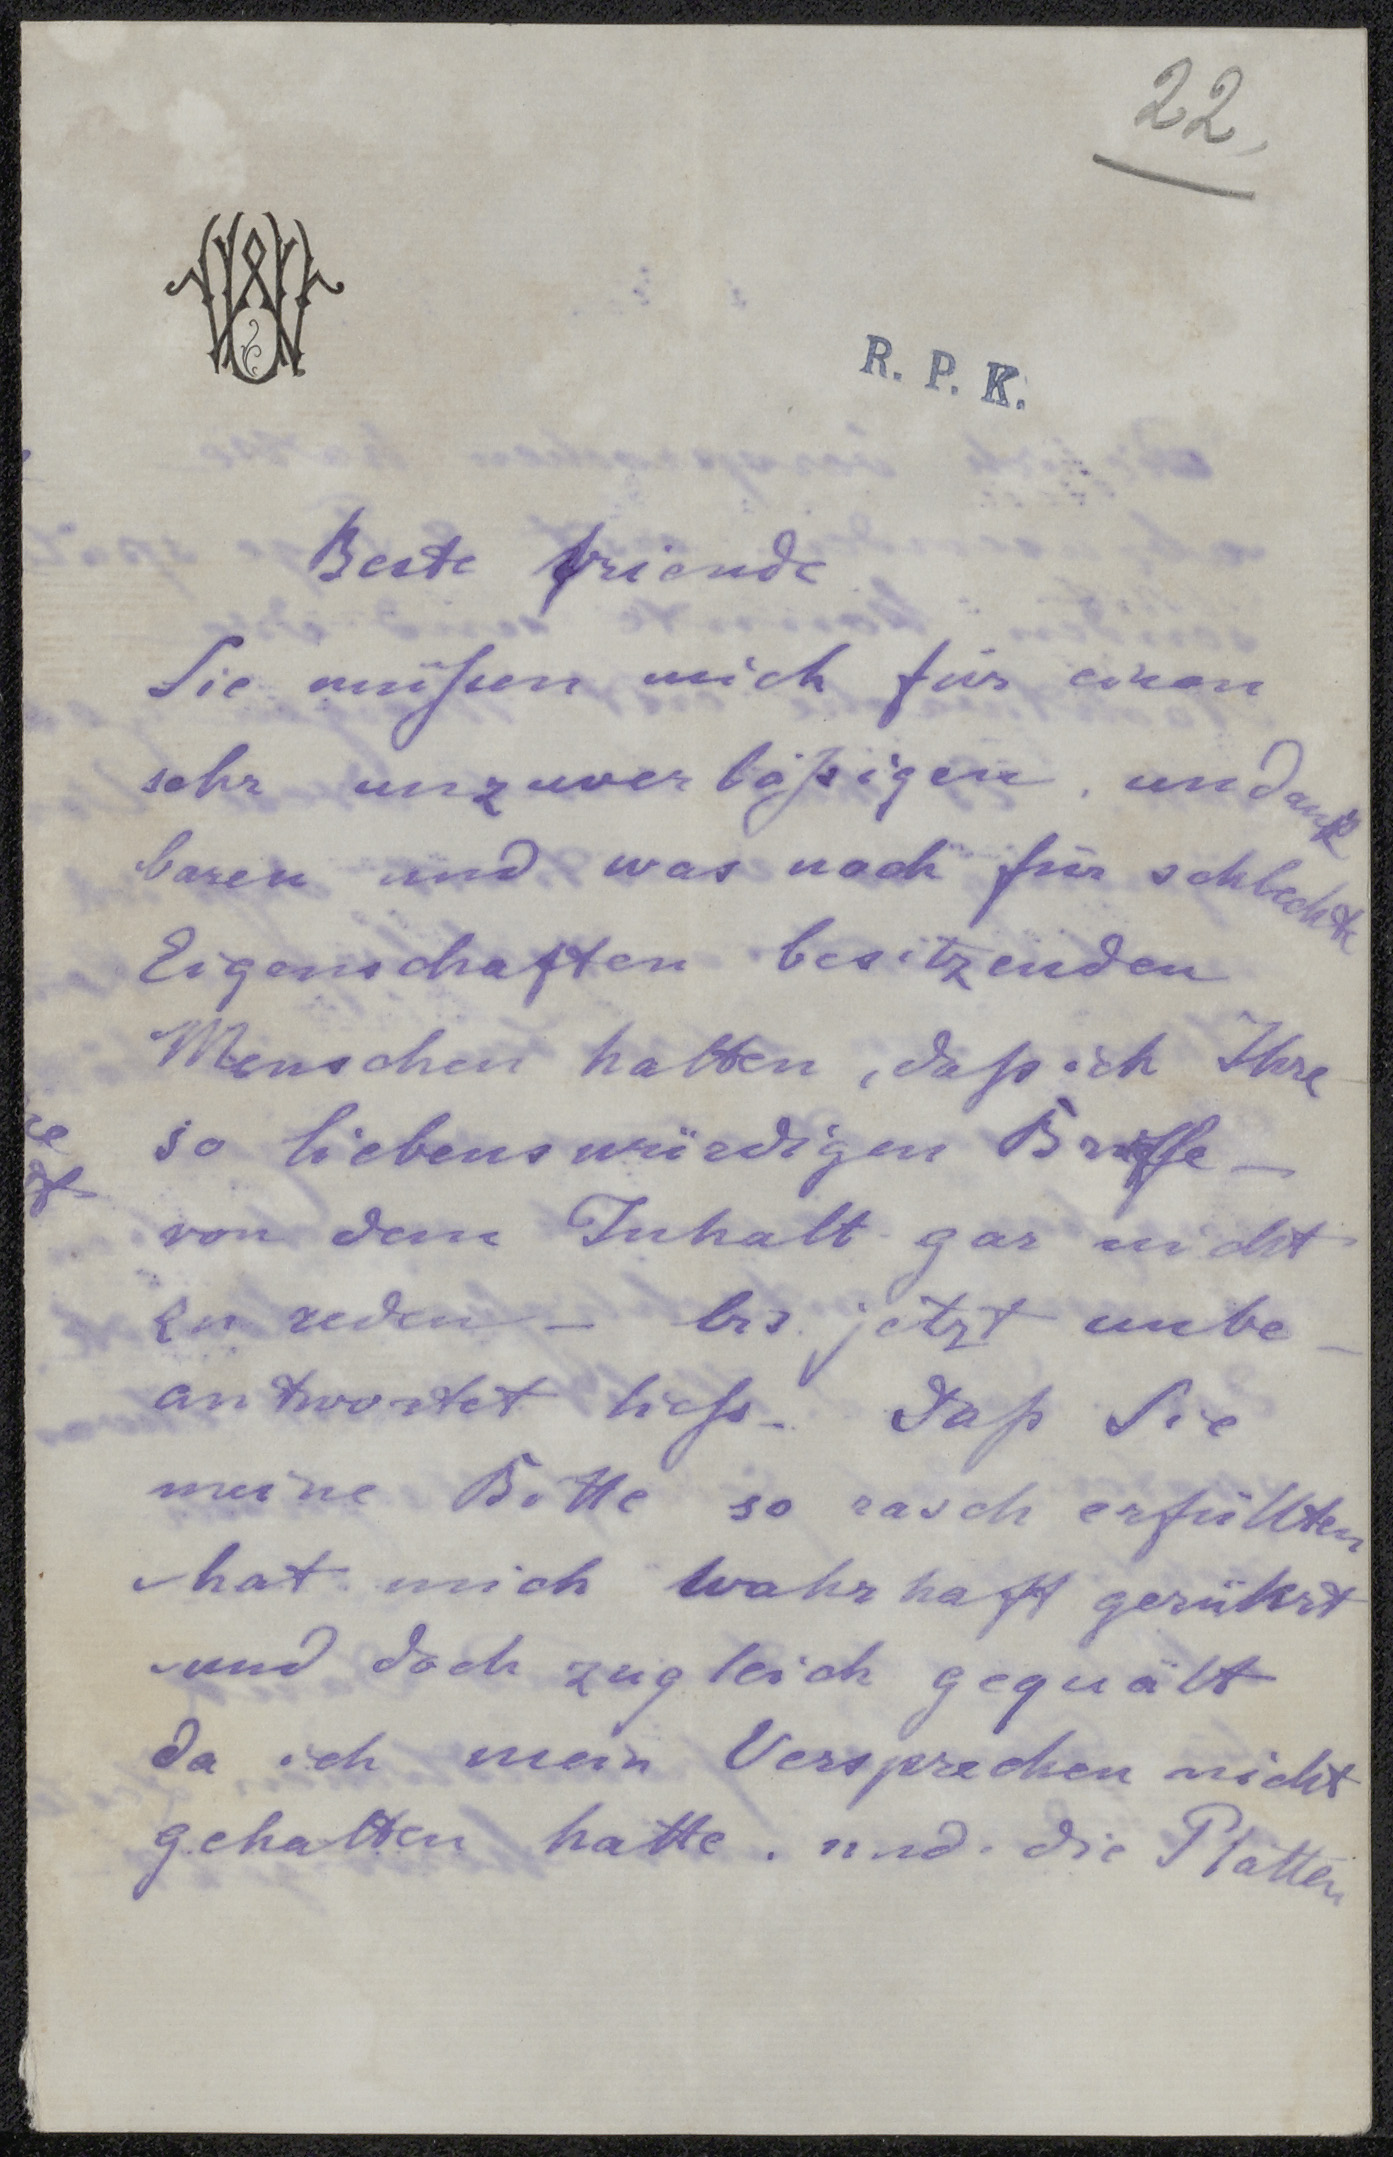 22.
R. P. K.
Beste friende
Sie müßen mich für einen
sehr unzuverläßigen, undank
baren und was noch für schlechte
Eigenschaften besitzenden
Menschen halten, daß ich Ihre
so liebenswürdigen Briefe –
von dem Inhalt gar nicht
zu reden – bis jetzt unbe –
antwortet ließ – Daß Sie
meine Bitte so rasch erfüllten
hat mich wahrhaft gerührt
und doch zugleich gequält
da ich mein Versprechen nicht
gehalten hatte. und die Platten